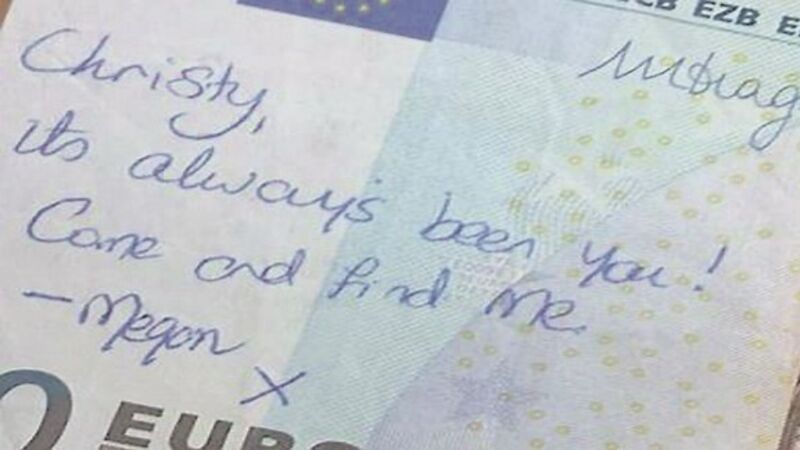 CB EZB E
Christy,
its always been you!
Come and find me
- Megan x
0 EURO